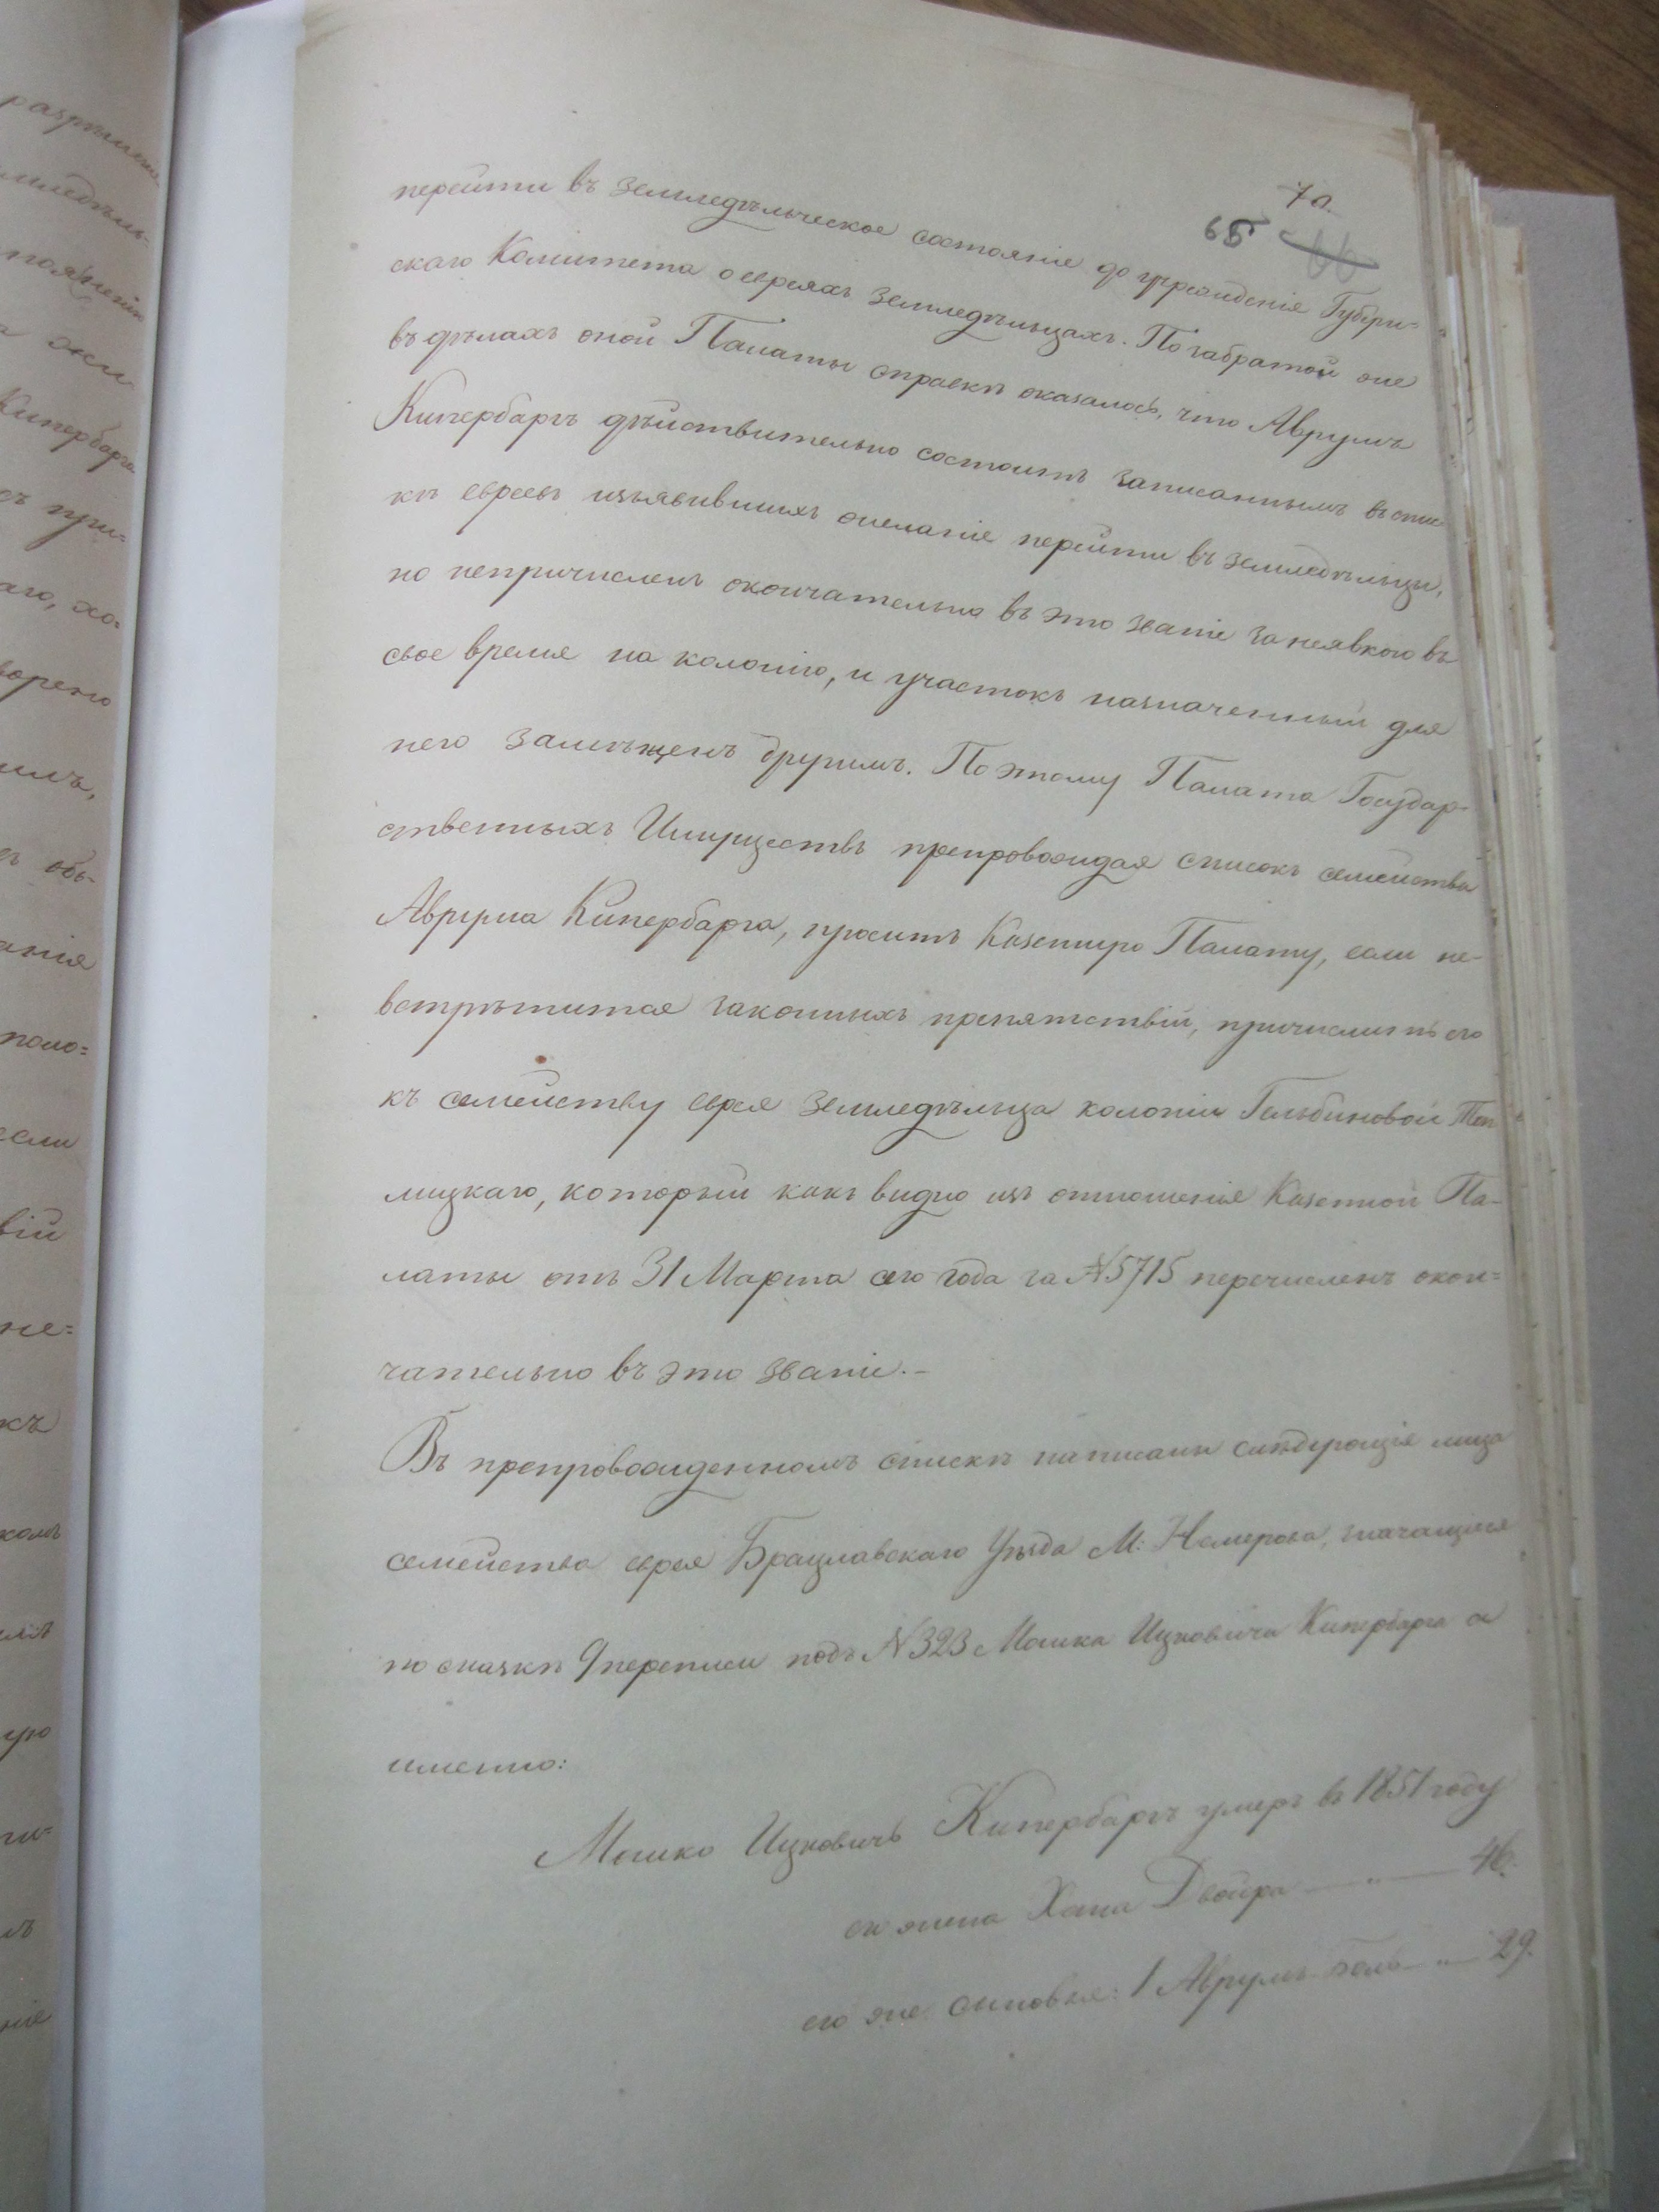 70.
65 66
перейти въ земледѣльческое состояніе до учрежденія Губерн=
скаго Комитета о евреяхъ земледѣльцахъ. По забратой же
въ дѣлахъ оной Палаты справкѣ оказалось, что Аврумъ
Кипербаргъ дѣйствительно состоитъ записаннымъ въ спис
кѣ евреевъ изъявившихъ желаніе перейти въ земледѣльцы,
но непричисленъ окончательно въ это званіе за неявкою въ
свое время на колонію, и участокъ назначенный для
него замѣщенъ другимъ. По этому Палата Государ-
ственныхъ Имуществъ препровождая списокъ семейства
Аврума Кипербарга, проситъ Казенную Палату, если не-
встрѣтится законныхъ препятствій, причислить его
къ семейству еврея земледѣльца колоніи Гальбиновой
лицкаго, который какъ видно изъ отношенія Казенной Па-
латы отъ 31 Марта сего года за №5715 перечисленъ окон=
чательно въ это званіе.-
Въ препровожденномъ спискѣ написаны слѣдующія лица
семейства еврея Брацлавскаго Уѣзда М: Немирова, значащіяся
по сказкѣ 9 переписи подъ №323 Мошка Ицковича Кипербарга а
именно:
Мошко Ицковичъ Кипербаргъ умеръ въ 1851 году
его жена Хана Двойра — „ — 46.
его же сыновья: 1 Аврумъ — „ — 29.
разрѣшенія
Кипербарга
съ при=
аго, хо=
ворено
объ-
анія
поло=
если
вій
не=
къ
комъ
ую
ніе